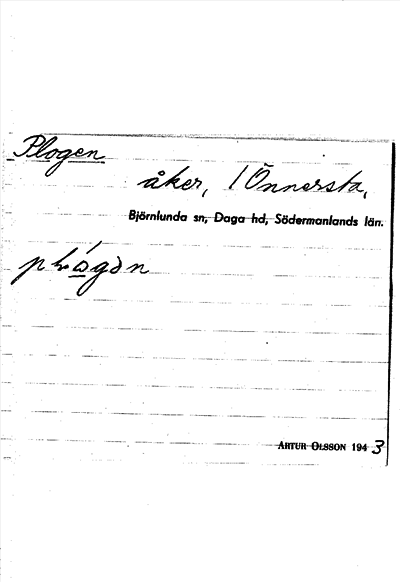 Plogen
åker, 1 Önnersta,
Björnlunda sn, Daga hd, Södermanlands län.
ARTUR OLSSON 1943